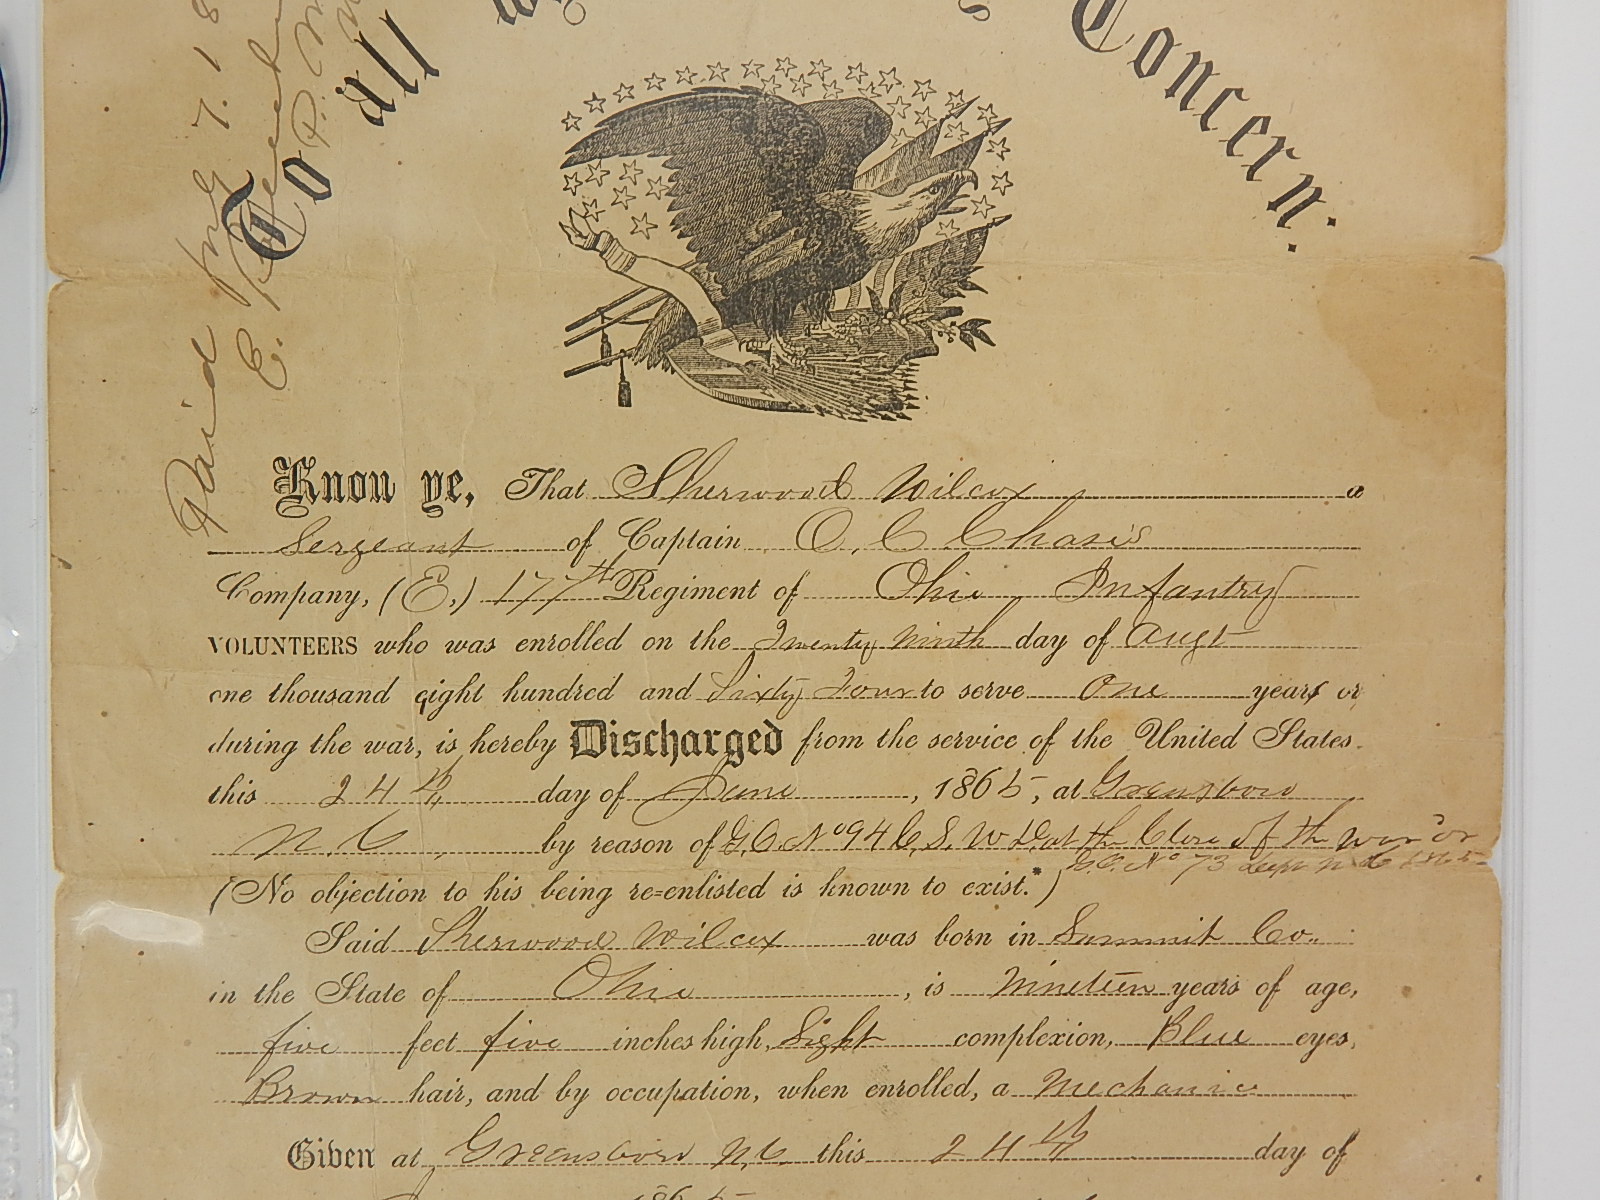 To all Concern:
Paid
Know ye, That Sherwood Wilcox a
Sergeant of Captain O. C Chase's
Company, (E,) 177th Regiment of Ohio Infantry
VOLUNTEERS who was enrolled on the Twenty Ninth day of Augt
one thousand eight hundred and Sixty Four to serve One years or
during the war, is hereby Discharged from the service of the United States
this 24th day of June, 1865, at Greensboro
N. C, by reason of G.O. No 94 C. S. W D. at the Close of the war or
G.O. No 73 Dept N C 1865
(No objection to his being re-enlisted is known to exist.*)
Said Sherwood Wilcox was born in Summit Co.
in the State of Ohio, is Nineteen years of age,
five feet five inches high, Light complexion, Blue eyes,
Brown hair, and by occupation, when enrolled, a Mechanic
Given at Greensboro N.C. this 24th day of
1865